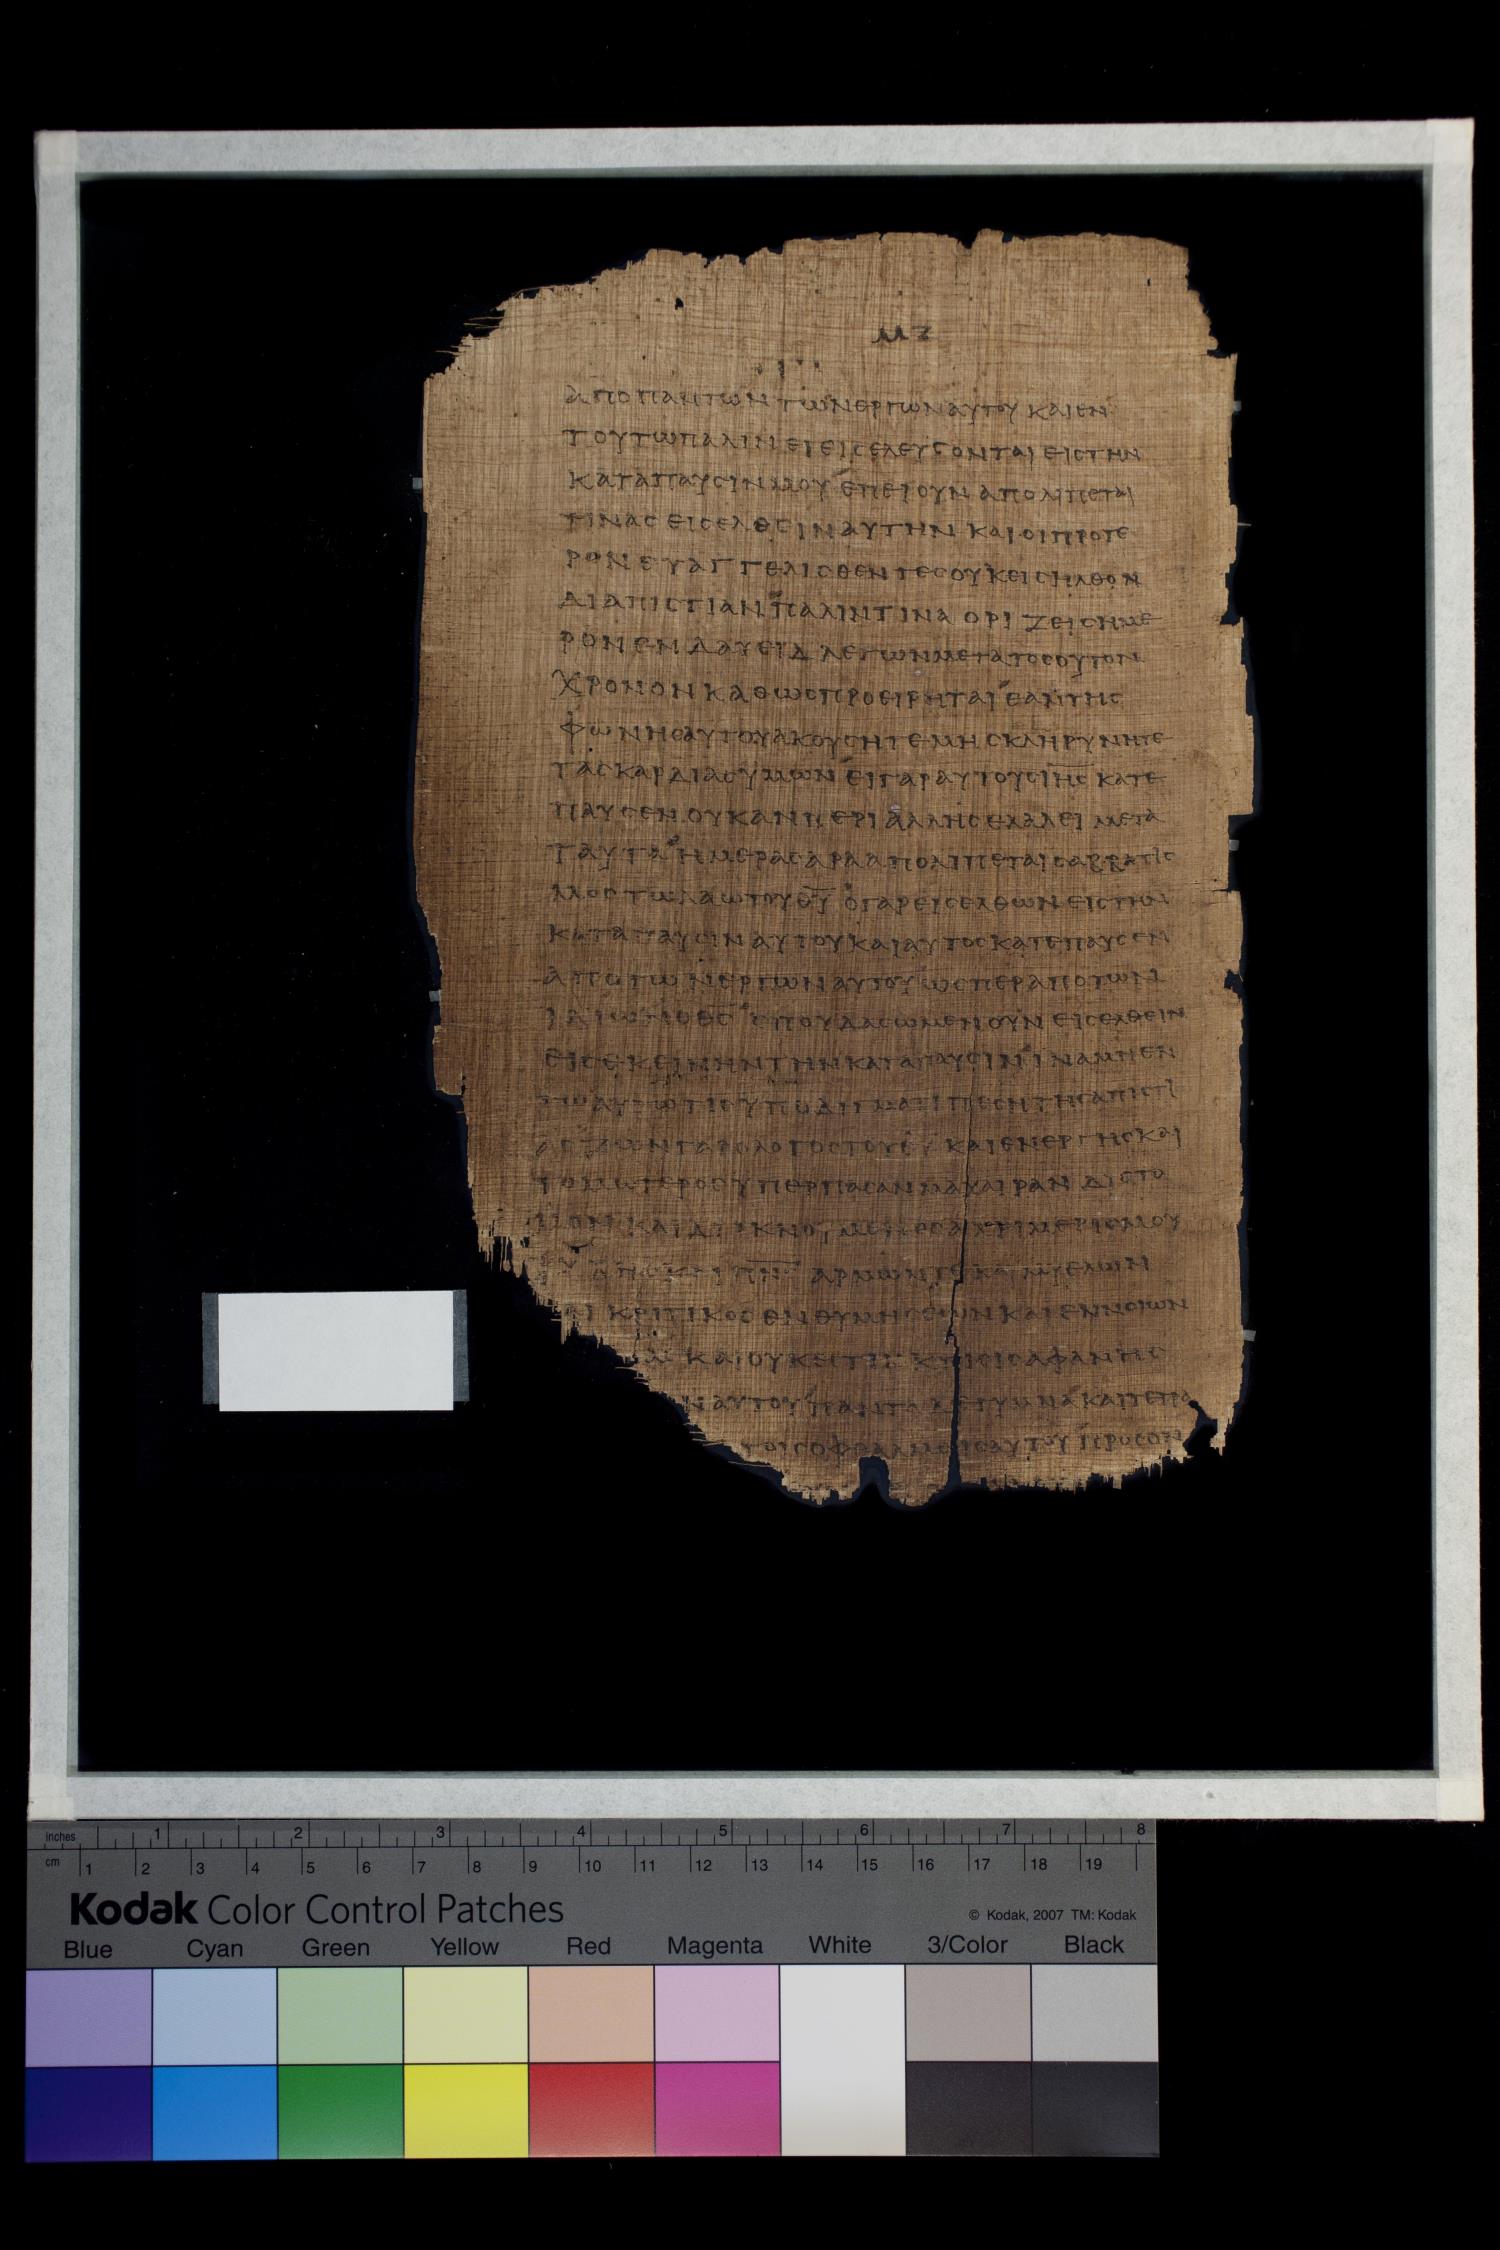 μζ
αποπαντωντωνεργωναυτου καιεν
τουτωπαλιν ειεισελευσονται ειςτην
καταπαυσινμου επειουν απολιπεται
τινας εισελθεινεις αυτην καιοιπροτε
ρονευαγγελισθεντεςουκεισηλθον
διαπιστιαν παλιντινα οριζεισημε
ρονεν δαυειδ λεγωνμετατοσουτον
χρονον καθωςπροειρηται εαντης
φωνηςαυτουακουσητε μησκληρυνητε
ταςκαρδιαςυμων ειγαραυτουςιης κατε
παυσεν ουκαν περι αλληςελαλει μετα
ταυτα ημερας αρααπολιπεταισαββατις
μος τωλαωτουθυ ογαρεισελθων ειςτην
καταπαυσιν αυτου καιαυτοςκατεπαυσεν
απο των εργωναυτου ωσπεραποτων
ιδιωνοθς σπουδασωμενουν εισελθειν
ειςεκεινηντην καταπαυσιν ιναμηεν
ζωνγαρολογοςτουθυ καιενεργηςκαι
τομωτεροςυπερπασανμαχαιραν διστο
αρμωντε καιμυελων
κριτικοςενθυμησεωνκαιεννοιων
καιουκεστιν κτισιςαφανης
αυτου παντα δεγυμνα καιτετρα
τοιςοφθαλμοιςαυτου προςον
inches 1 2 3 4 5 6 7 8
cm 1 2 3 4 5 6 7 8 9 10 11 12 13 14 15 16 17 18 19
Kodak Color Control Patches © Kodak, 2007 TM: Kodak
Blue Cyan Green Yellow Red Magenta White 3/Color Black